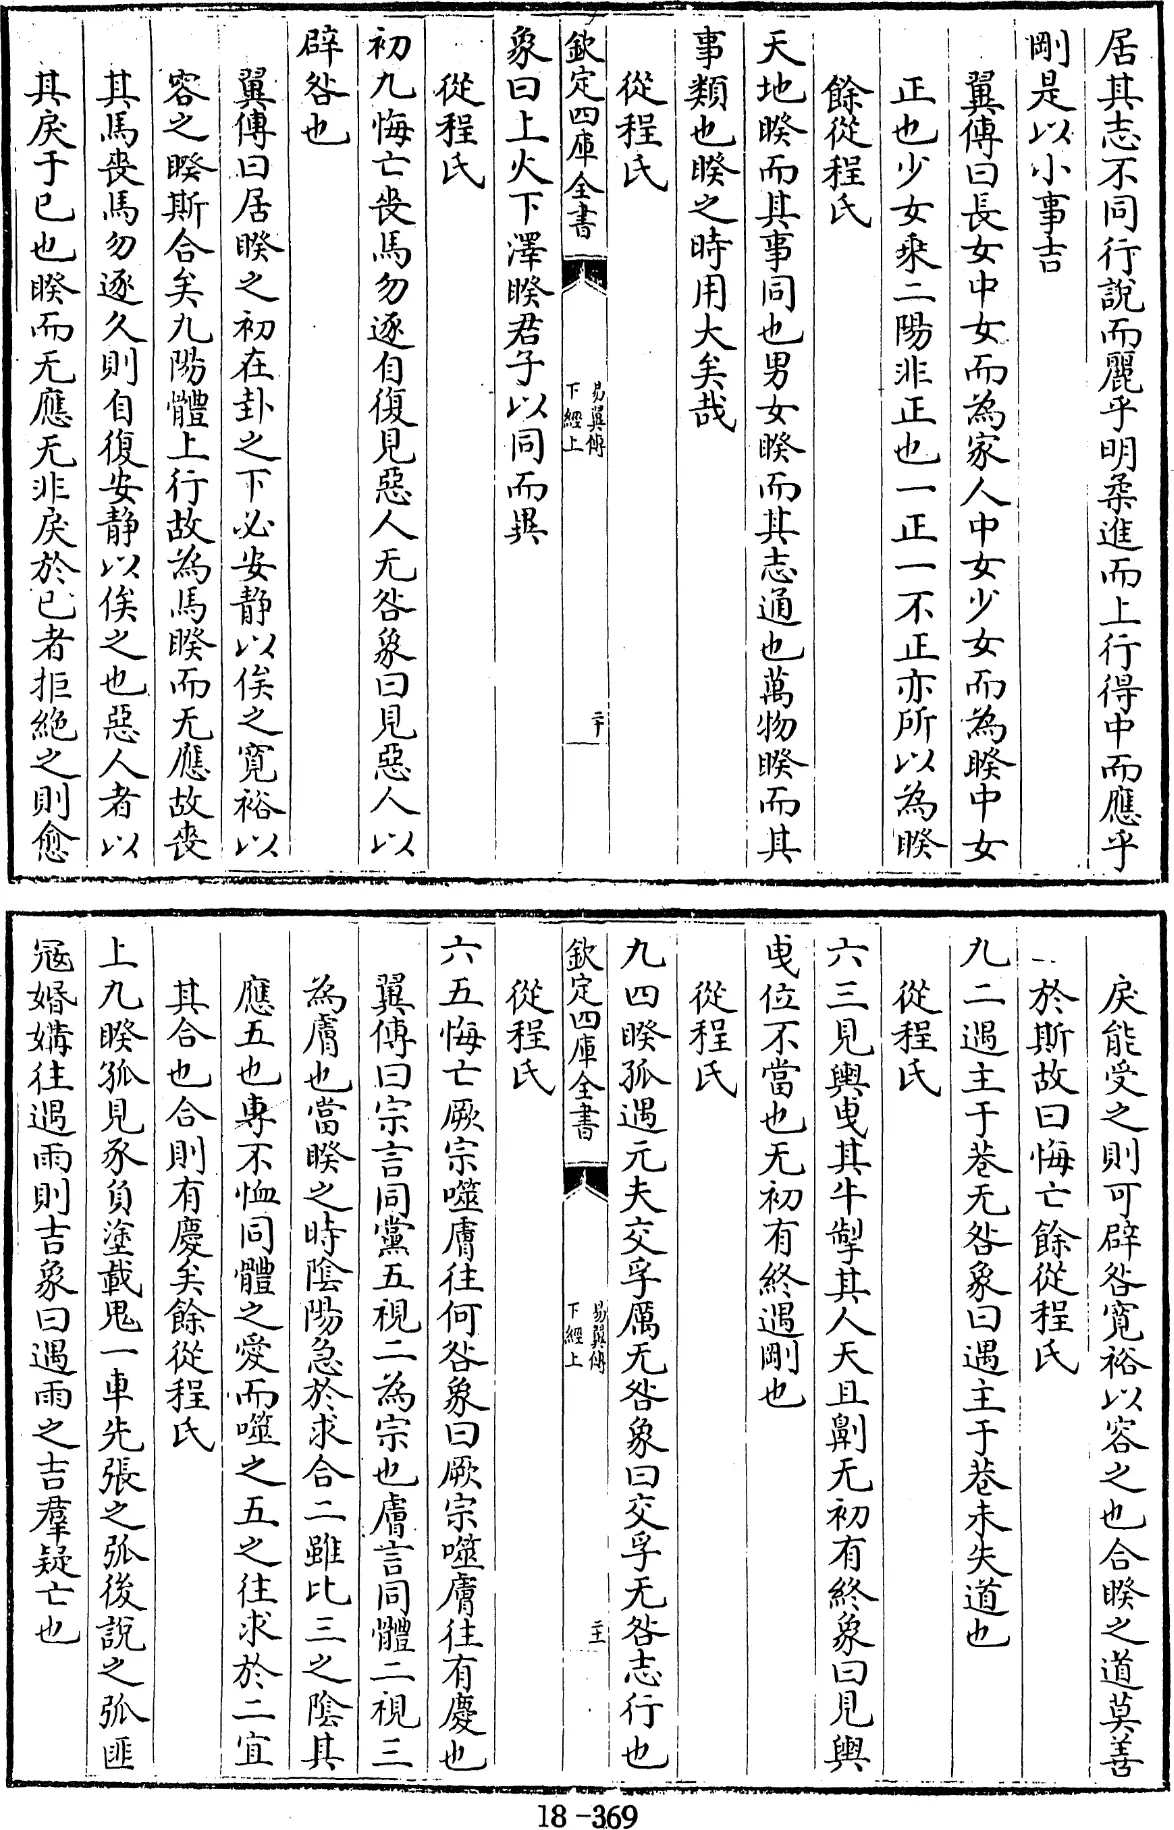 居其志不同行說而麗乎明柔進而上行得中而應乎
剛是以小事吉
翼傳曰長女中女而為家人中女少女而為睽中女
正也少女乘二陽非正也一正一不正亦所以為睽
餘從程氏
天地睽而其事同也男女睽而其志通也萬物睽而其
事類也睽之時用大矣哉
從程氏
欽定四庫全書
易翼傳
下經上
二十
象曰上火下澤睽君子以同而異
從程氏
初九悔亡喪馬勿逐自復見惡人无咎象曰見惡人以
辟咎也
翼傳曰居睽之初在卦之下必安靜以俟之寛裕以
容之睽斯合矣九陽體上行故為馬睽而无應故喪
其馬喪馬勿逐久則自復安靜以俟之也惡人者以
其戾于已也睽而无應无非戾於已者拒絶之則愈
戾能受之則可辟咎寛裕以容之也合睽之道莫善
於斯故曰悔亡餘從程氏
九二遇主于巷无咎象曰遇主于巷未失道也
從程氏
六三見輿曳其牛掣其人天且劓无初有終象曰見輿
曵位不當也无初有終遇剛也
從程氏
九四睽孤遇元夫交孚厲无咎象曰交孚无咎志行也
從程氏
欽定四庫全書
易翼傳
下經上
二十一
六五悔亡厥宗噬膚往何咎象曰厥宗噬膚往有慶也
翼傳曰宗言同黨五視二為宗也膚言同體二視三
為膚也當睽之時陰陽急於求合二雖比三之陰其
應五也專不恤同體之愛而噬之五之往求於二宜
其合也合則有慶矣餘從程氏
上九睽孤見豕負塗載鬼一車先張之弧後說之弧匪
冦婚媾往遇雨則吉象曰遇雨之吉羣疑亡也
18-369